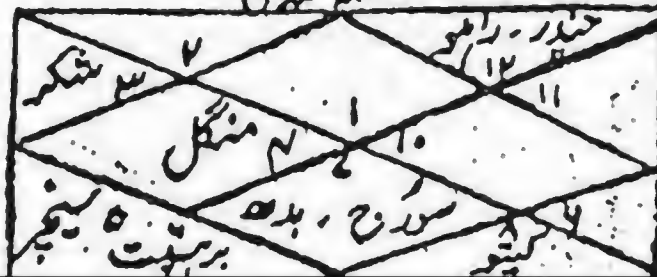 چندر - راہو
۳ شکر ۱۲ ۱۱
۱
منگل ۴ ۱۰
سورج ، بدھ
برہسپت ۵ سنیچر ۸ کیتو